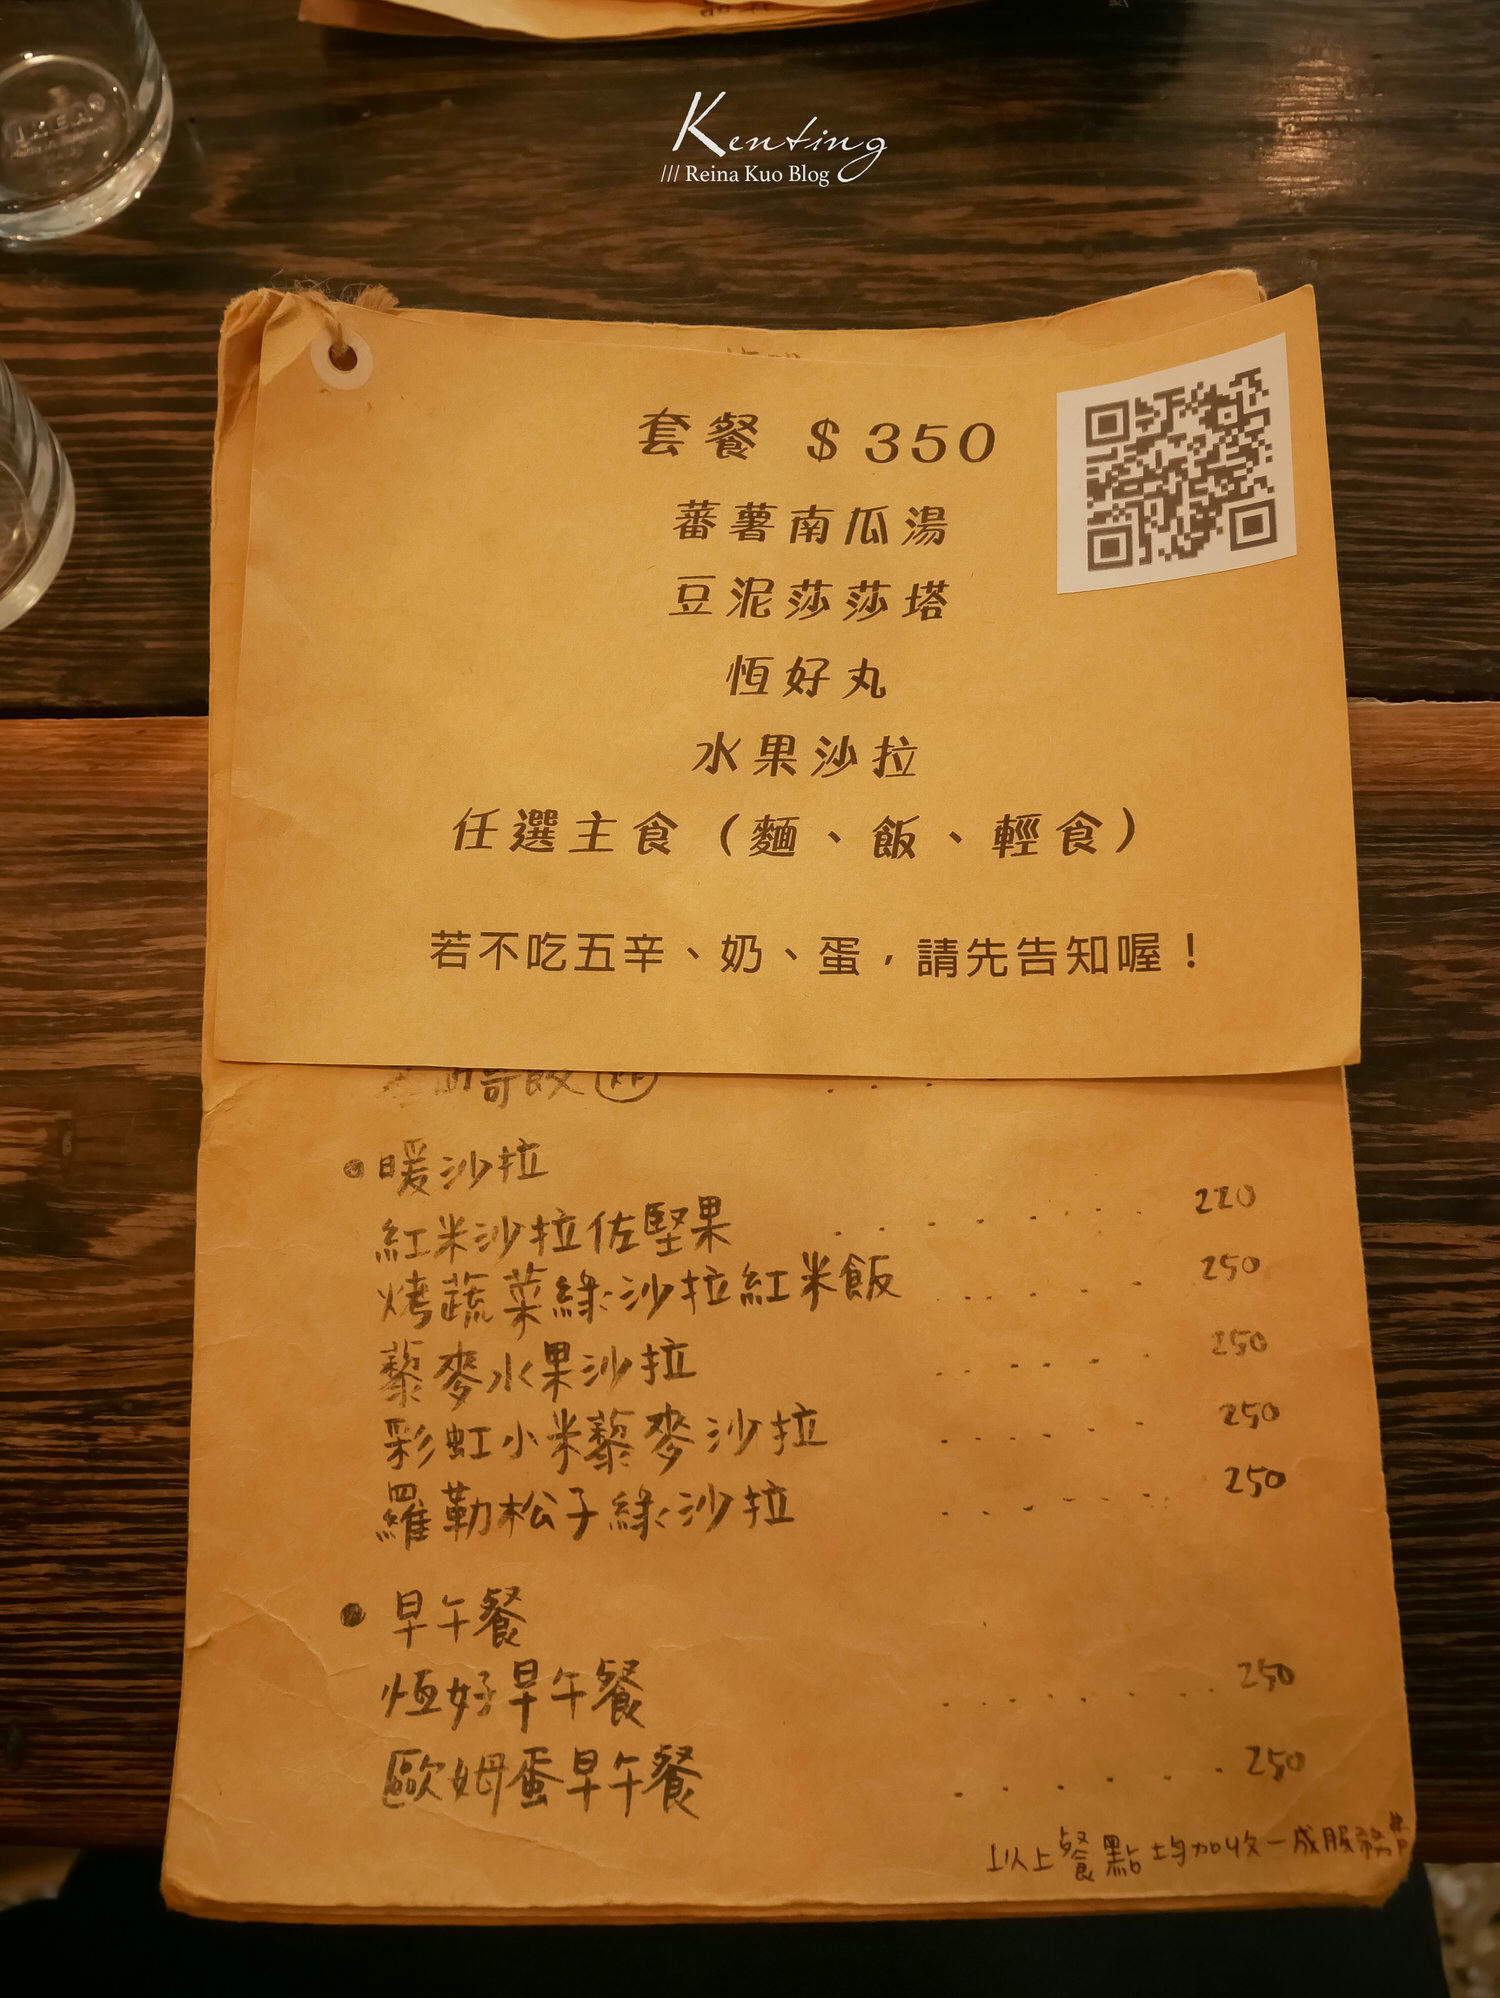 Kenting
/// Reina Kuo Blog
套餐 $350
蕃薯南瓜湯
豆泥莎莎塔
恆好丸
水果沙拉
任選主食（麵、飯、輕食）
若不吃五辛、奶、蛋，請先告知喔！
• 暖沙拉
紅米沙拉佐堅果 . . . . . . . . 220
烤蔬菜綠沙拉紅米飯 . . . . . . 250
藜麥水果沙拉 . . . . . . 250
彩虹小米藜麥沙拉 . . . . . . 250
羅勒松子綠沙拉 . . . . . . 250
• 早午餐
恆好早午餐 . . . . . . . . 250
歐姆蛋早午餐 . . . . . . 250
以上餐點均加收一成服務費